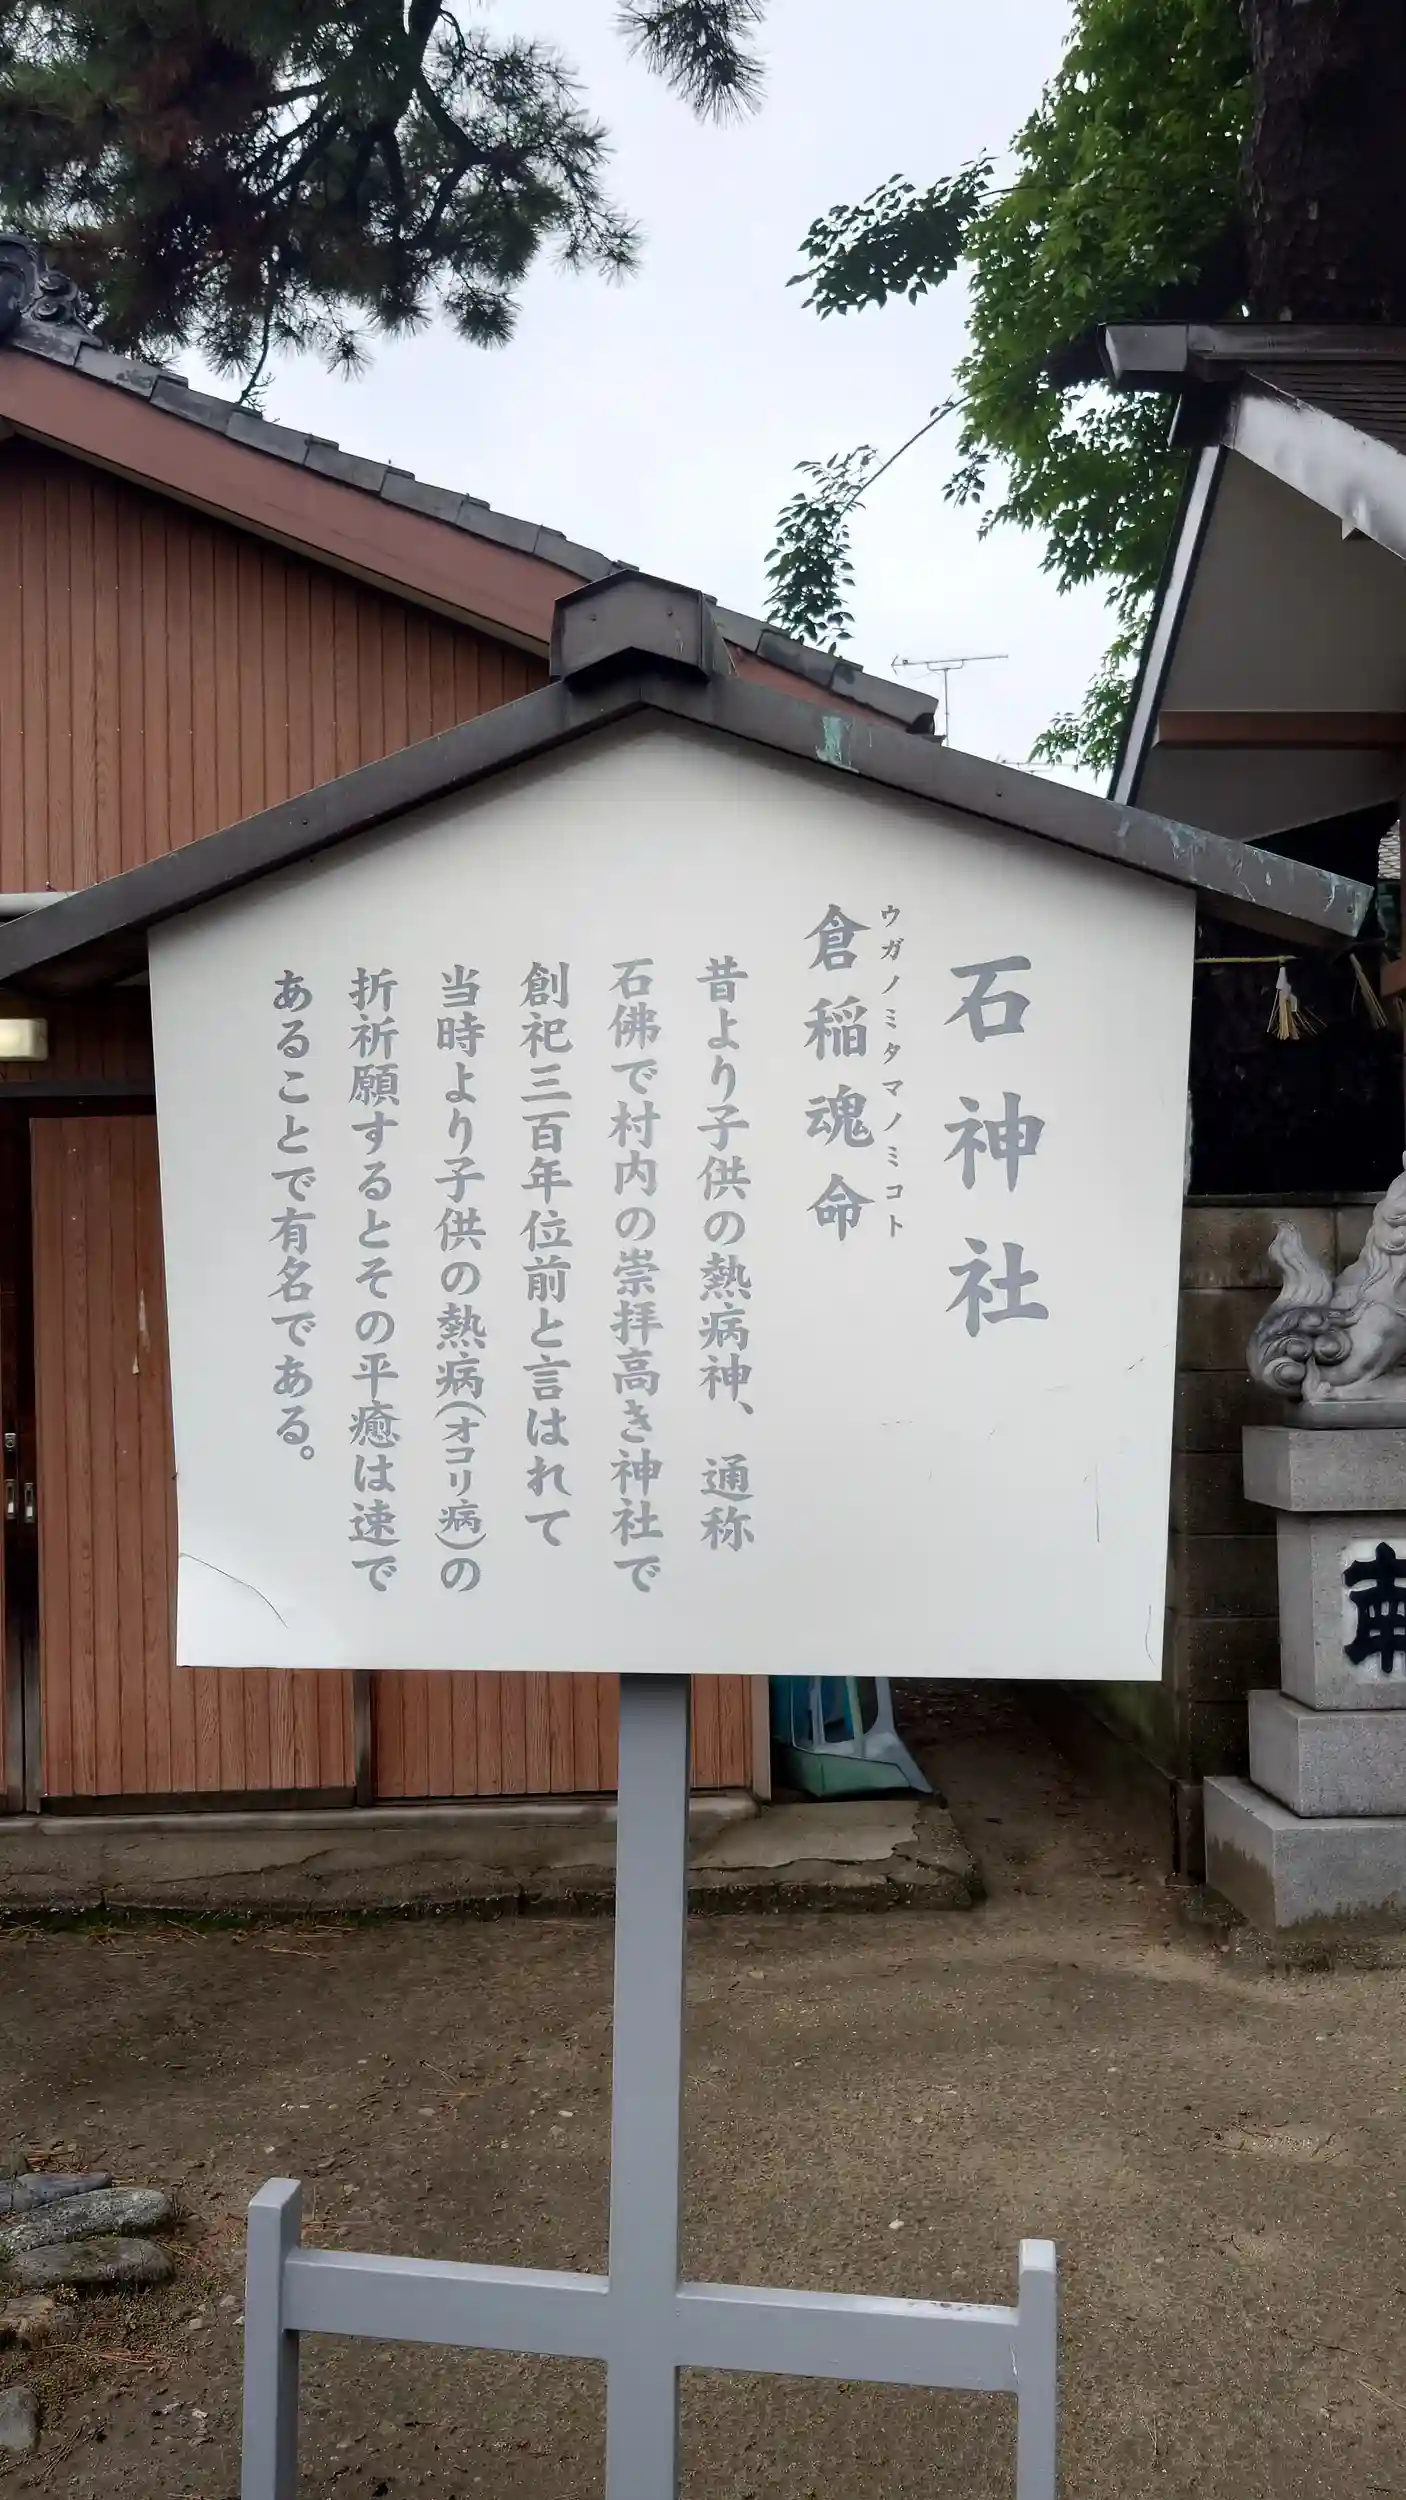 石神社
倉稲魂命
ウガノミタマノミコト
昔より子供の熱病神、通称
石佛で村内の崇拝高き神社で
創祀三百年位前と言はれて
当時より子供の熱病(オコリ病)の
折祈願するとその平癒は速で
あることで有名である。